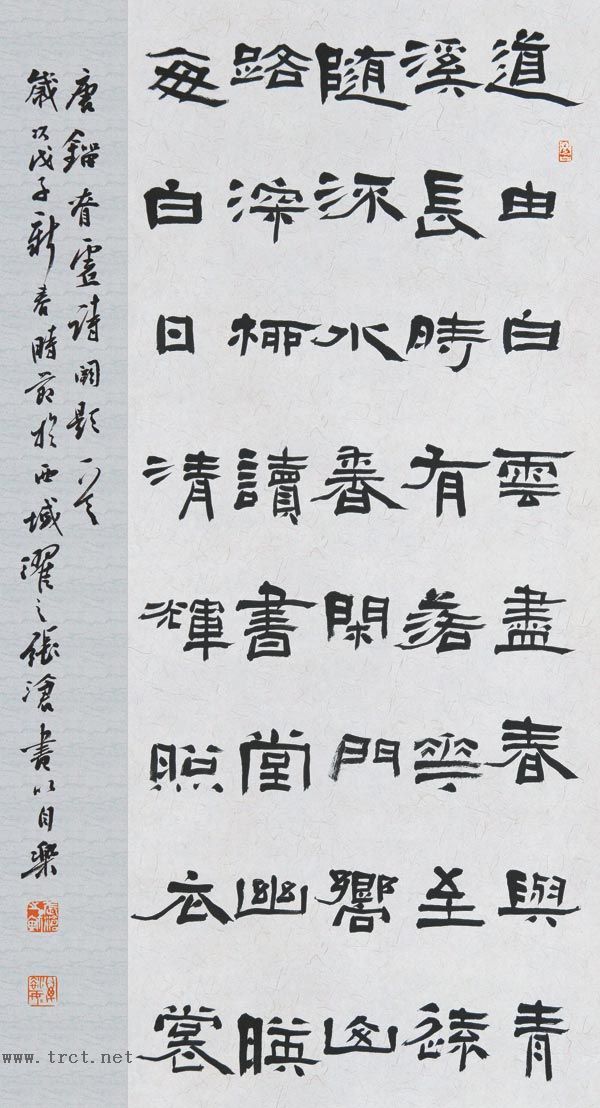 道由白雲盡春與青
溪長時有落華至遠
隨流水香閑門嚮山
路深柳讀書堂幽映
每白日清輝照衣裳
唐劉眘虛詩闕題一首
歲次戊子新春時節於西域濯之張滄書以自樂
www.trct.net